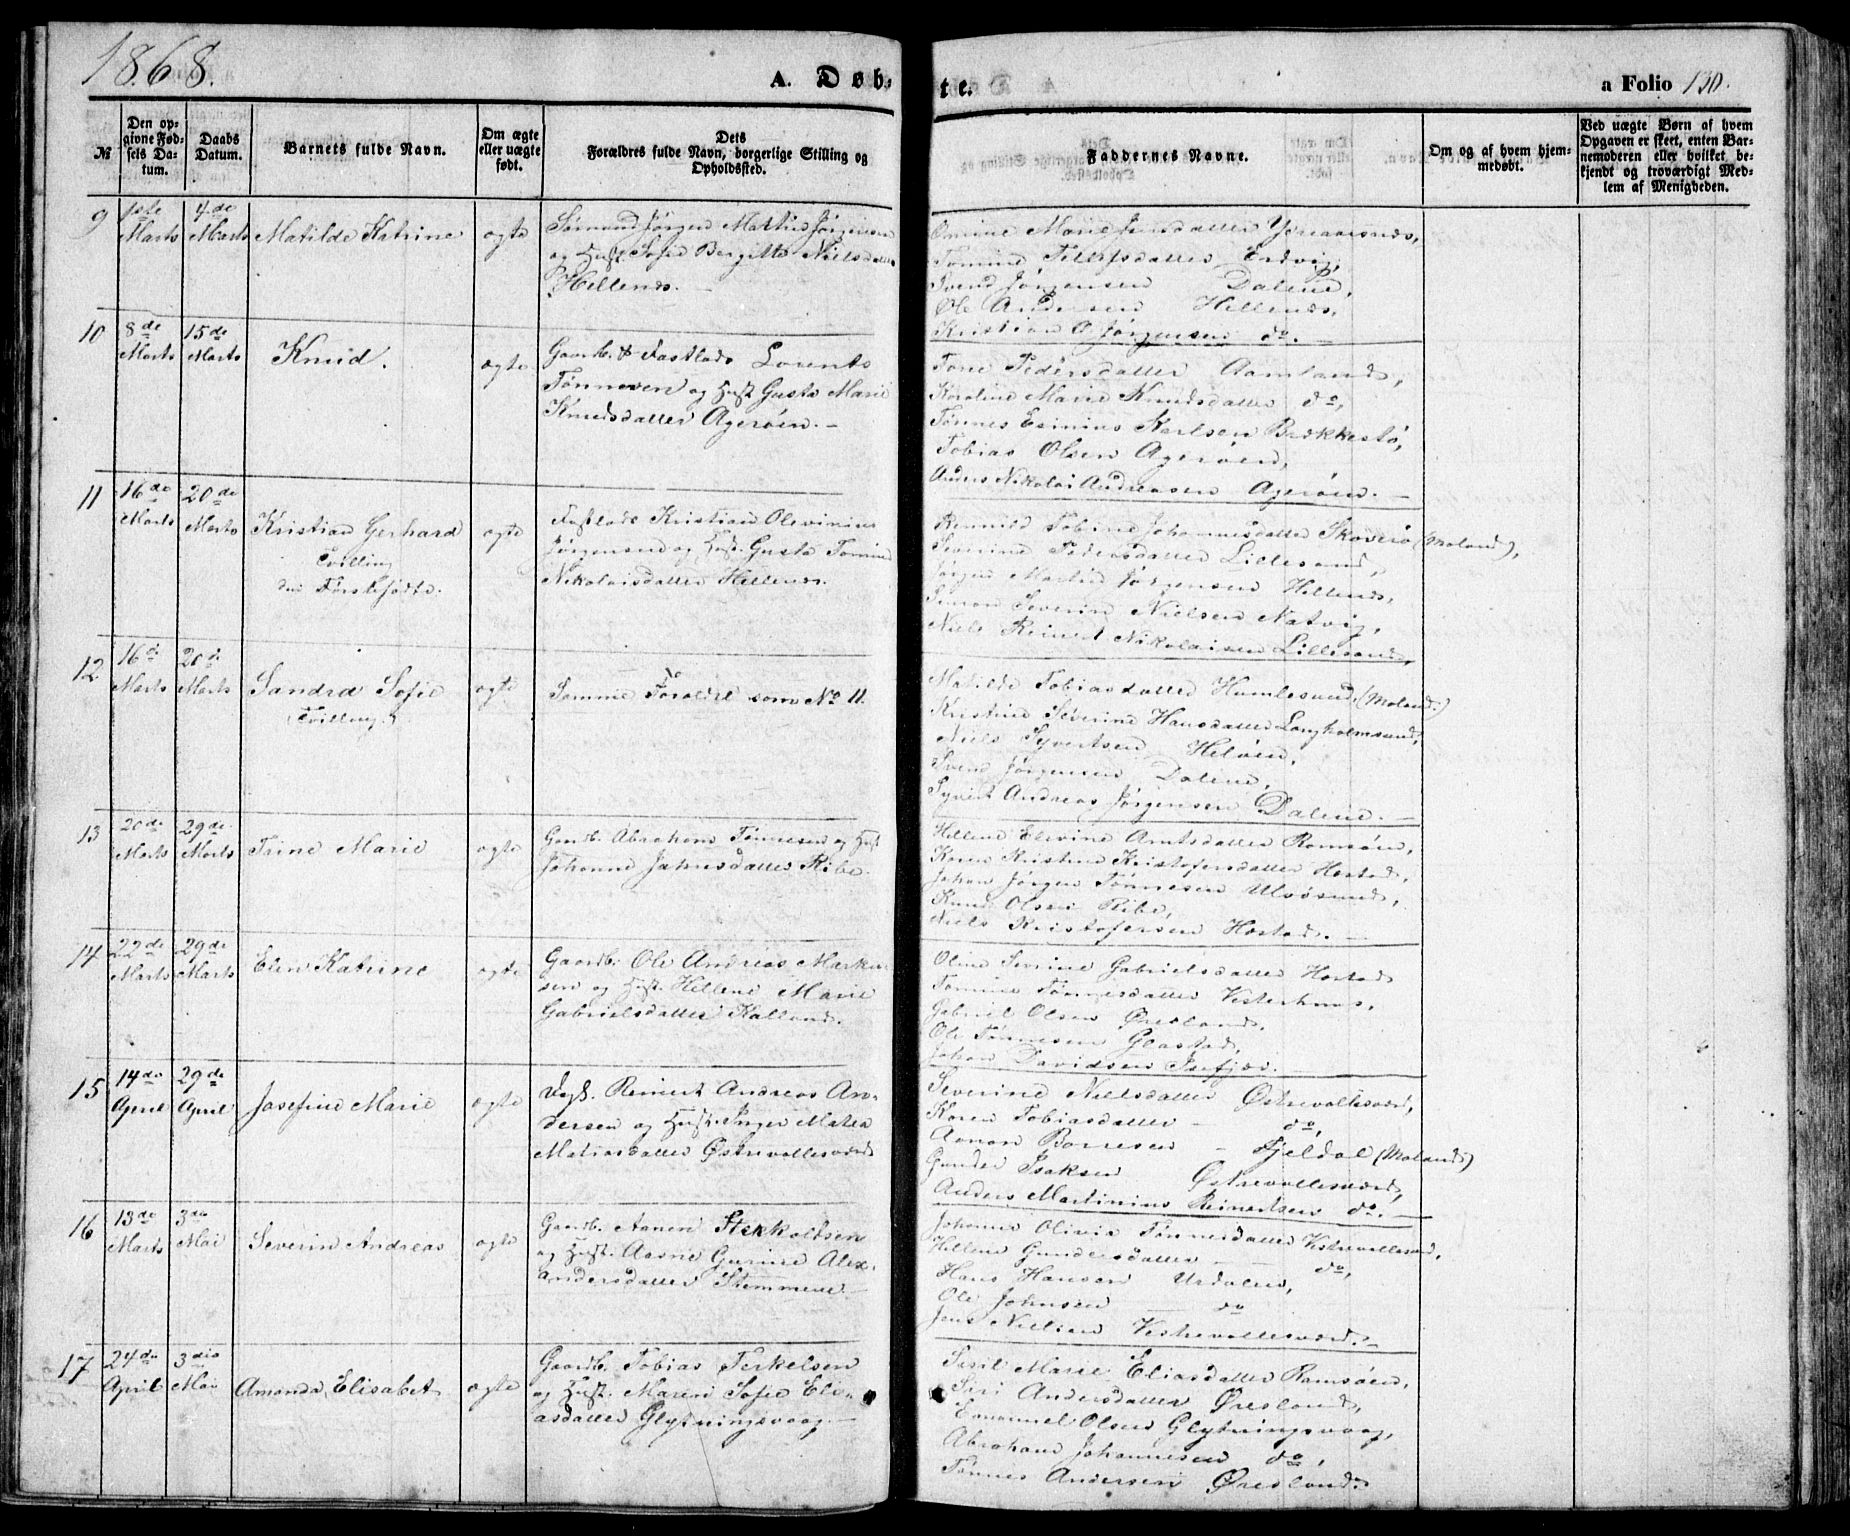 1868.
A. Døb-
te.
a Folio 130.
№
Den op-
givne Fød-
sels Da-
tum.
Daabs
Datum.
Barnets fulde Navn.
Om ægte
eller uægte
født.
Dets
Forældres fulde Navn, borgerlige Stilling og
Opholdssted.
Faddernes Navne.
Om og af hvem hjem-
medøbt.
Ved uægte Børn af hvem
Opgaven er skeet, enten Bar-
nemoderen eller hvilket be-
kjendt og troværdigt Med-
lem af Menigheden.
9
1ste
Marts
4de
Marts
Matilde Katrine
ægte
Sømand Jørgen Martin Jørgensen
og Hust. Sofie Bergitte Nielsdatter
Hellenæs.
Tomine Tellefsdatter
Svend Jørgensen Dalene,
Ole Andersen Hellenæs,
Kristian A. Jørgensen do. —
10
8de
Marts
15de
Marts
Knud.
ægte
Gaardb. & Fastlods Lorents
Tønnesen og Hust. Gusta Marie
Knudsdatter Agerøen. —
Tone Pedersdatter Aamland,
Karoline Marie Knudsdatter do,
Tønnes Esinius Karlsen Brækkestø,
Tobias Olsen Agerøen,
Anders Nikolai Andreasen Agerøen. —
11
16de
Marts
20de
Marts
Kristian Gerhard
Tvilling
den Førstefødte.
ægte
Fastlods Kristian Olevinius
Jørgensen og Hust. Gusta Tomine
Nikolaisdatter Hellenæs.
Tobine Johannesdatter Skøverø (Moland),
Severine Pedersdatter Lillesand,
Jørgen Martin Jørgensen Hellenæs,
Simon Severin Nielsen Natvig,
Niels Reinert Nikolaisen Lillesand,
12
16de
Marts
20de
Marts
Sandra Sofie
(Tvilling)
ægte
Samme Forældre som No 11.
Matilde Tobiasdatter Humlesund, (Moland.)
Kristine Severine Hansdatter Langholmsund,
Niels Syvertsen Heløen,
Svend Jørgensen Dalene,
Syvert Andreas Jørgensen Dalene. —
13
20de
Marts
29de
Marts
Trine Marie
ægte
Gaardb. Abraham Tønnesen og Hust
Johanne Jahnsdatter Ribe.
Hellene Elevine Arntsdatter Ramsøen,
Karen Kristine Kristofersdatter Hæstad,
Johan Jørgen Tønnesen Uløsund,
Knud Olsen Ribe,
Niels Kristofersen Hæstad. —
14
22de
Marts
29de
Marts
Elen Katrine
ægte
Gaardb. Ole Andreas Marku-
sen og Hust. Hellene Marie
Gabrielsdatter Kalland.
Oline Severine Gabrielsdatter Hæstad
Tomine Tønnesdatter Vesterhuus,
Gabriel Olsen Øresland,
Ole Tønnesen Glastad,
Johan Davidsen Isefjær. —
15
14de
April
29de
April
Josefine Marie
ægte
Reinert Andreas An-
dersen og Hust. Inger Matea
Matiasdatter Østrevallesværd
Severine Nielsdatter Østrevallesværd,
Karen Tobiasdatter — do,
Aanon Børresen — Fjeldal (Moland)
Gunder Isaksen Østrevallesværd,
Anders Martinius Reinertsen do. —
16
13de
Marts
3die
Mai
Severin Andreas
ægte
Gaardb. Aanen Sterkoldsen
og Hust. Aasne Gurine Alex-
andersdatter Stemmene. —
Johanne Olivia Tønnesdatter Vestrevallesværd,
Hellene Gundersdatter — do,
Hans Hansen Urdalen,
Ole Johnsen — do
Jens Nielsen Vestrevallesværd. —
17
24de
April
3die
Mai
Amanda Elisabet
ægte
Gaardb. Tobias Terkelsen
og Hust. Maren Sofie Eli-
asdatter Glytningsvaag. —
Sesil Marie Eliasdatter Ramsøen,
Siri Andersdatter Øresland,
Emanuel Olsen Glytningsvaag,
Abraham Johannesen do,
Tønnes Andersen Øresland.